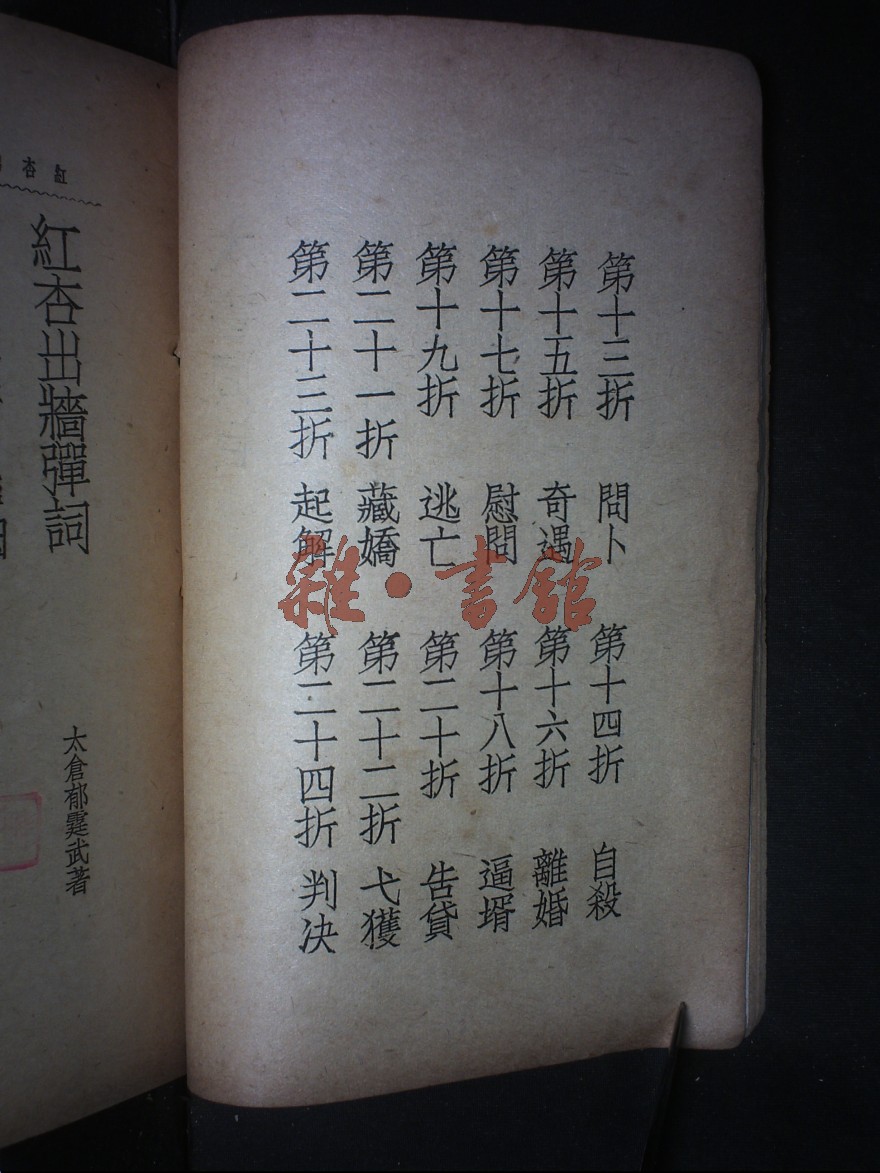 第十三折 問卜 第十四折 自殺
第十五折 奇遇 第十六折 離婚
第十七折 慰問 第十八折 逼壻
第十九折 逃亡 第二十折 告貸
第二十一折 藏嬌 第二十二折 弋獲
第二十三折 起解 第二十四折 判决
雜·書館
紅杏
紅杏出牆彈詞
太倉郁霆武著